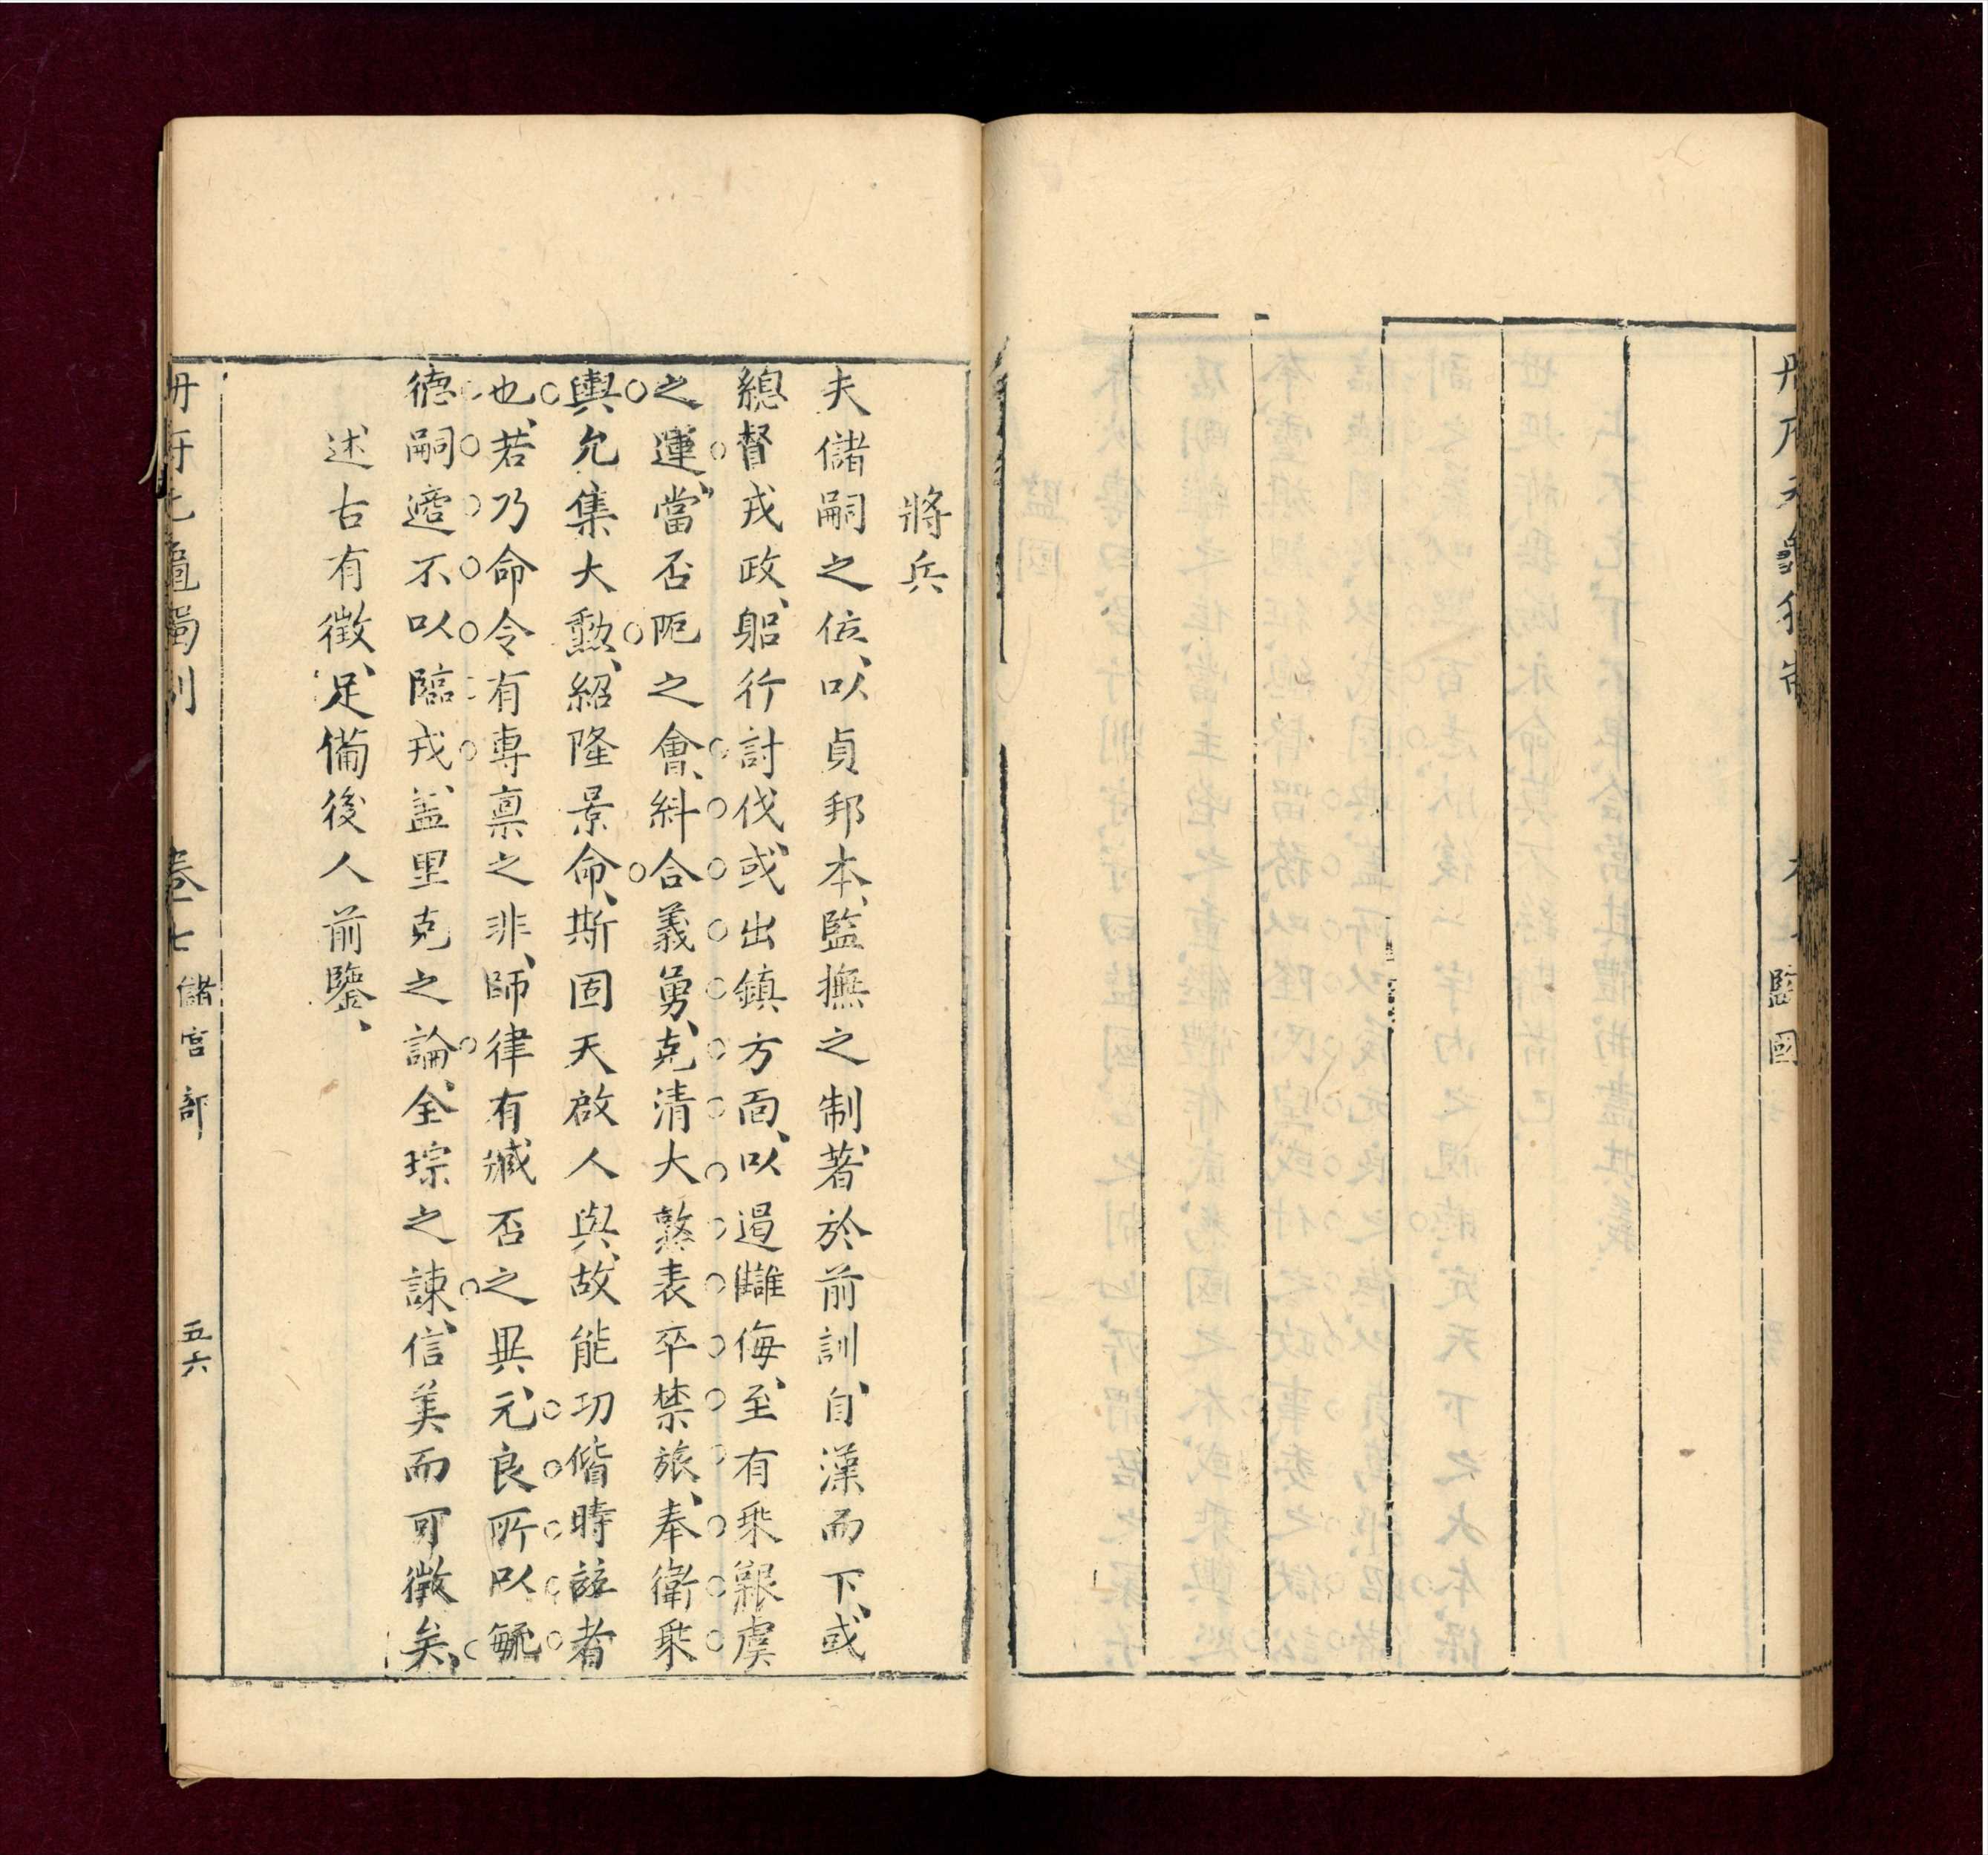 監國
將兵
夫儲嗣之位、以貞邦本、監撫之制、著於前訓、自漢而下、或
總督戎政、躬行討伐、或出鎮方面、以遏讎侮、至有乘艱虞
之運、當否阨之會、糾合義勇、克清大憝、表卒禁旅、奉衛乘
輿、允集大勲、紹隆景命、斯固天啟人與、故能功偕時竝者
也、若乃命令有專稟之非、師律有臧否之異、元良所以毓
德嗣適不以臨戎、盖里克之論、全琮之諫、信美而可徵矣、
述古有徵、足備後人前鑒、
冊府元龜獨制
卷七
儲宮部
五六